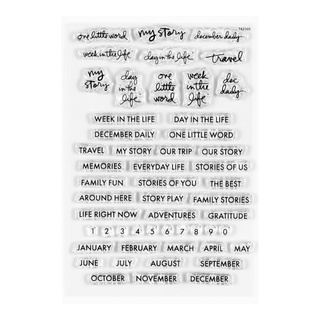 one little word my story december daily
week in the life day in the life travel
my story day in the life one little word week in the life dec daily
WEEK IN THE LIFE DAY IN THE LIFE
DECEMBER DAILY ONE LITTLE WORD
TRAVEL MY STORY OUR TRIP OUR STORY
MEMORIES EVERYDAY LIFE STORIES OF US
FAMILY FUN STORIES OF YOU THE BEST
AROUND HERE STORY PLAY FAMILY STORIES
LIFE RIGHT NOW ADVENTURES GRATITUDE
1 2 3 4 5 6 7 8 9 0
JANUARY FEBRUARY MARCH APRIL MAY
JUNE JULY AUGUST SEPTEMBER
OCTOBER NOVEMBER DECEMBER